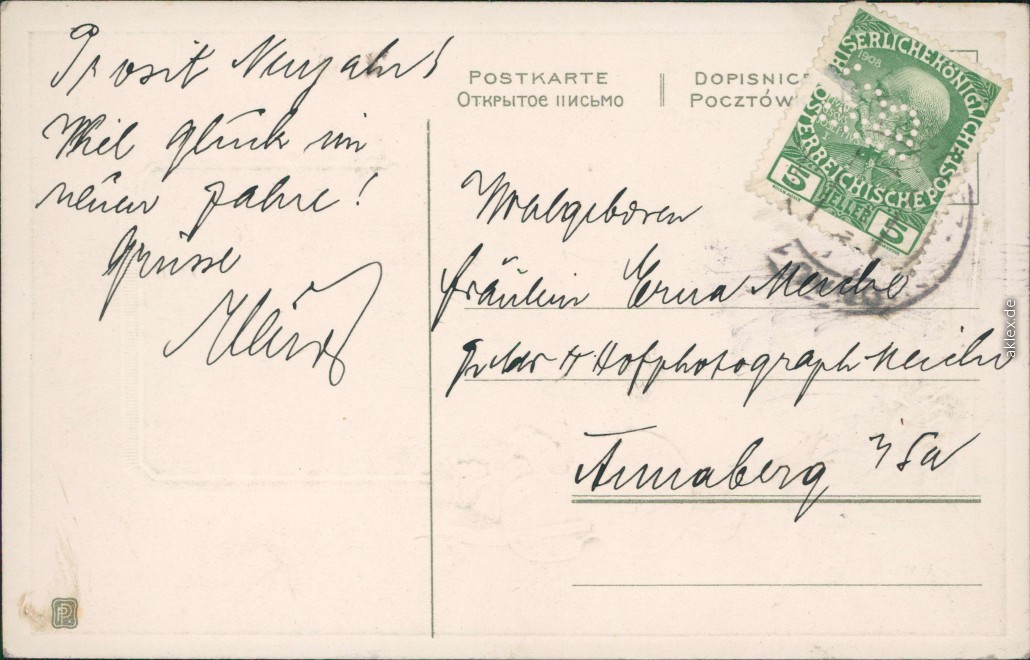 Prosit Neujahr!
Viel glück im
neuen Jahre!
Grüsse
POSTKARTE
DOPISNICE
ОТКРЫТОЕ ПИСЬМО
POCZTÓW
KAISERLICHEKÖNIGLICHE
ÖSTERREICHISCHEPOST
1908
5 HELLER 5
Wohlgeboren
Fräulein Erna Meiche
Hofphotograph Meiche
Annaberg i/Sa
PP
aklex.de